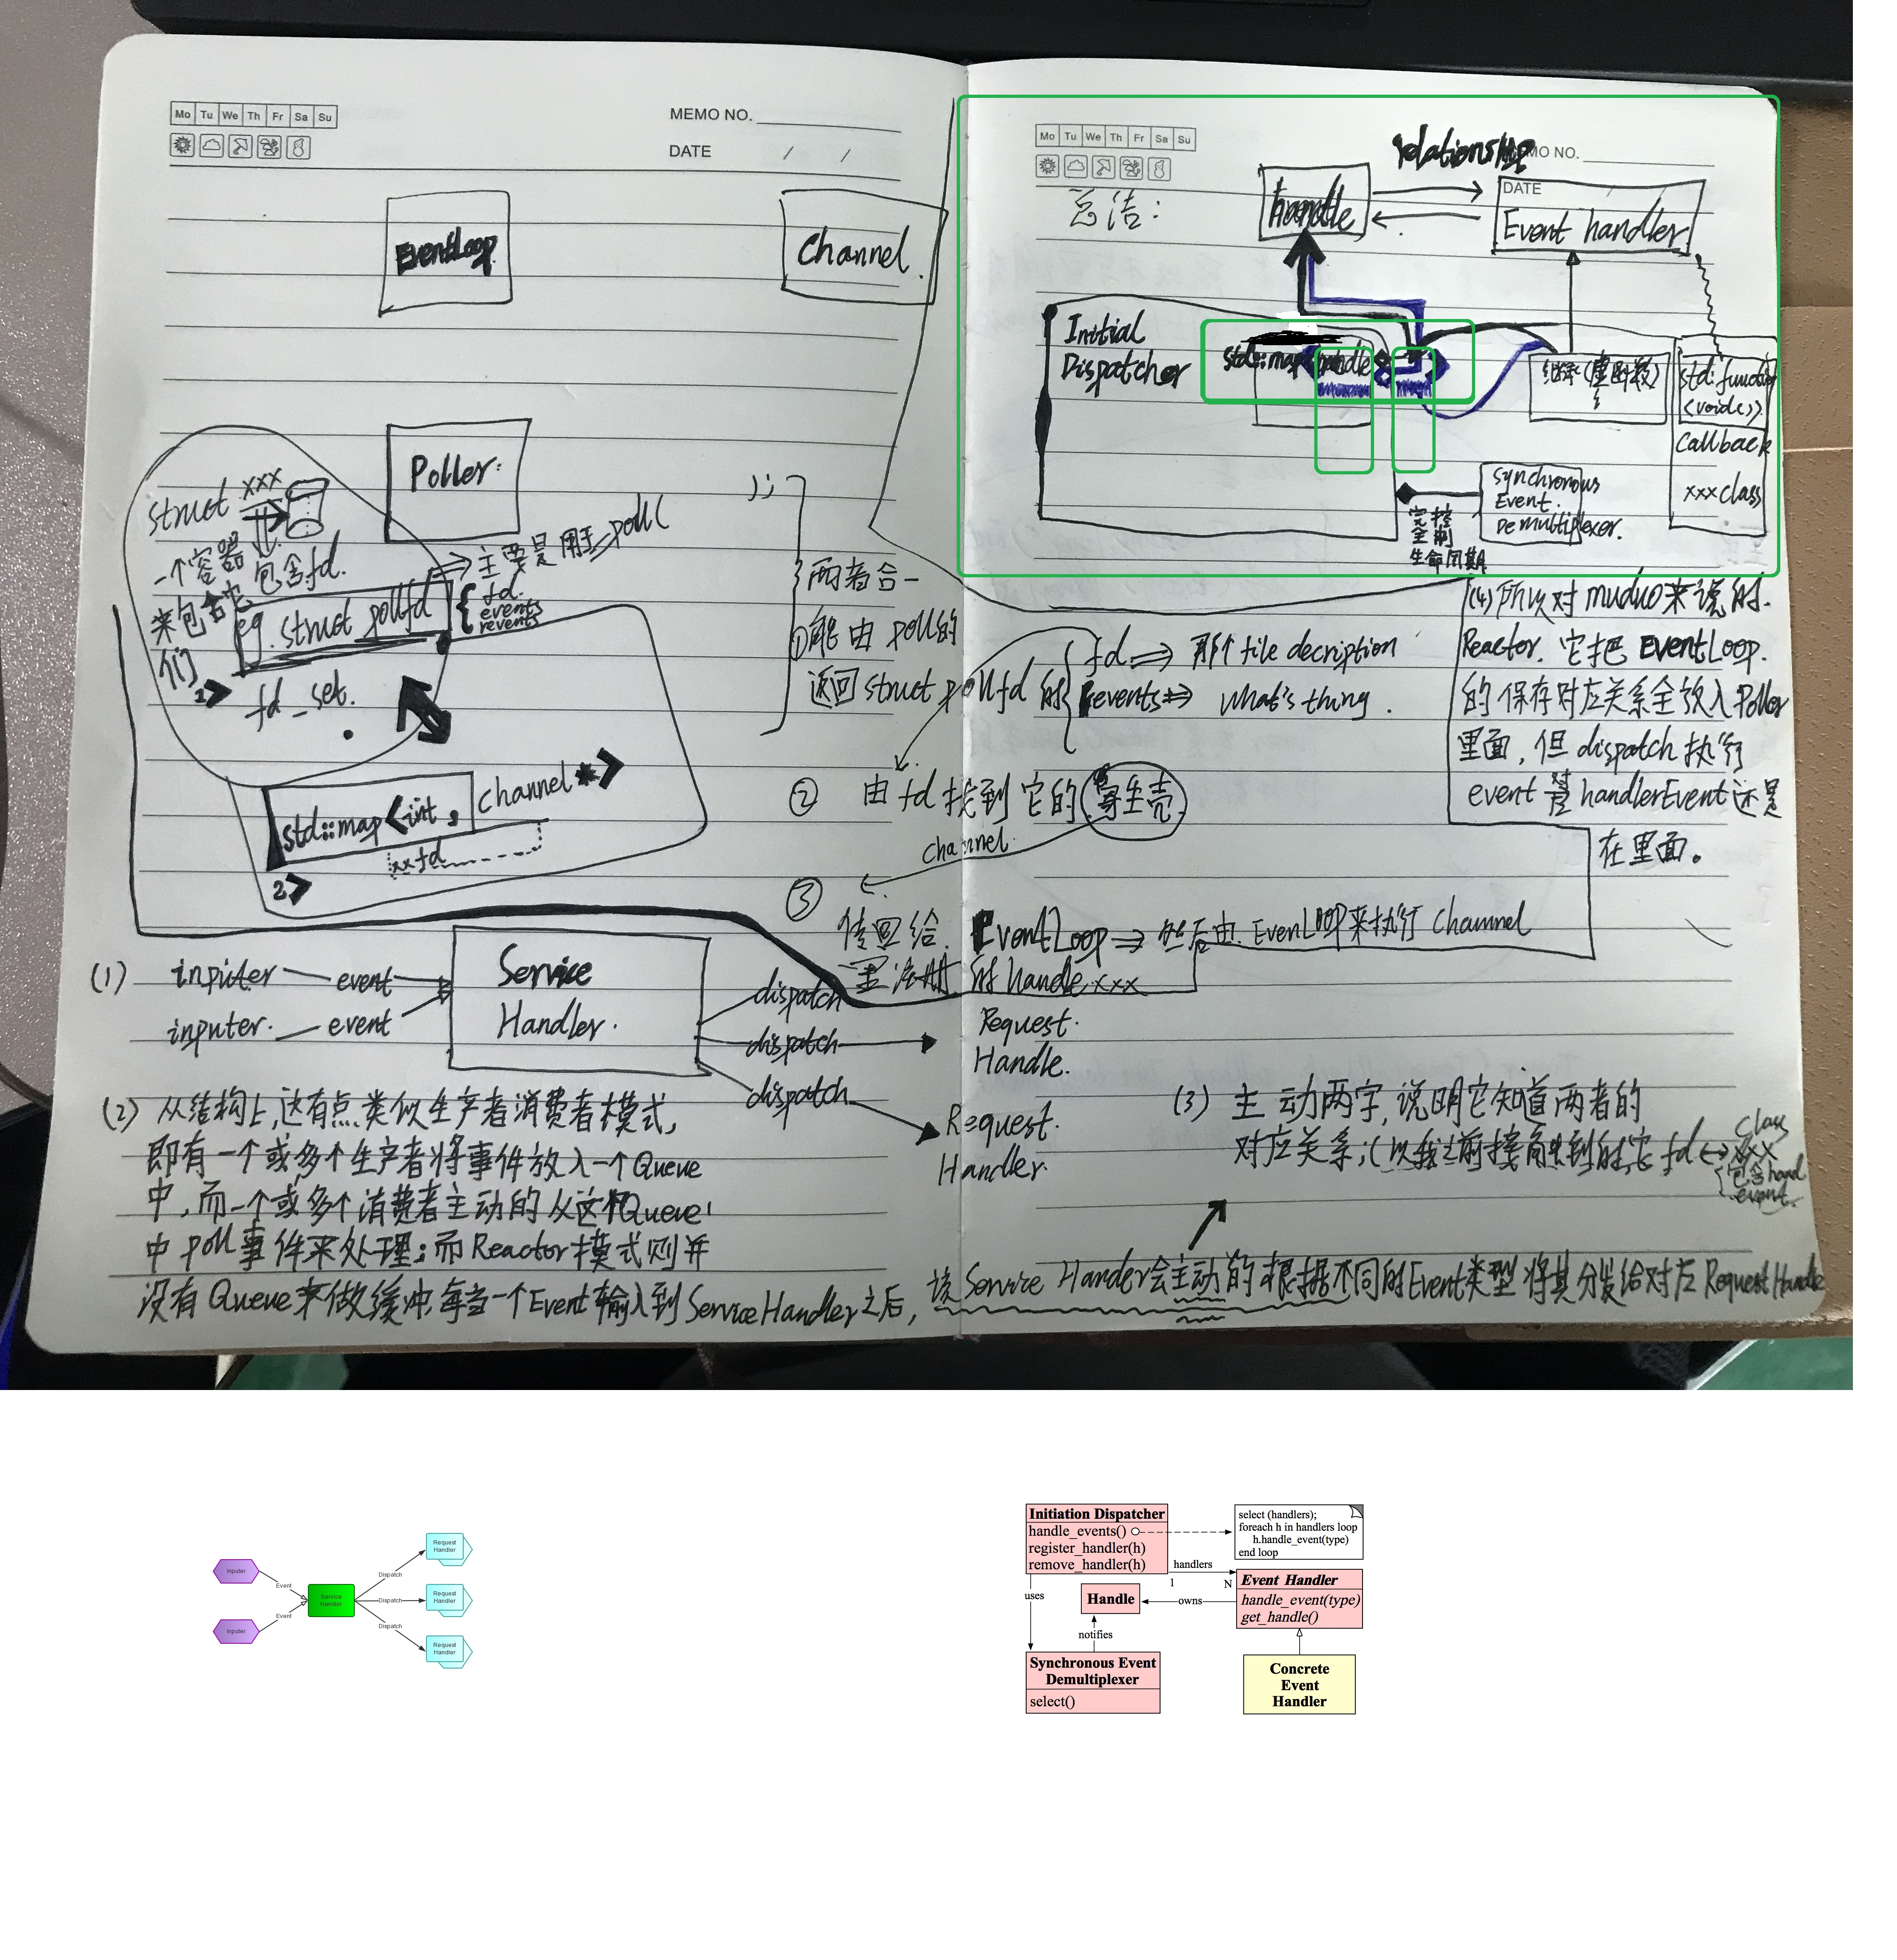 Mo Tu We Th Fr Sa Su
MEMO NO.
DATE / /
EventLoop
Channel.
Poller:
struct xxx
一个容器 包含fd.
来包含它
们
eg. struct pollfd
{ fd.
events
revents
⇒ 主要是用于poll(
1>
fd_set.
std::map<int, channel*>
xxfd
2>
);
两者合一
①能由 poll的
返回struct pollfd的
fd ⇒ 那个file decription
revents⇒ what's thing.
② 由fd找到它的寄生壳
channel.
③
传回给. EventLoop ⇒ 然后由. EvenLOOP来执行 Channel
的handle xxx
(1) inputer event
inputer. event
Service
Handler.
dispatch
dispatch
dispatch
Request.
Handle.
Request.
Handler.
(2) 从结构上,这有点类似生产者消费者模式,
即有一个或多个生产者将事件放入一个Queue
中,而一个或多个消费者主动的从这个Queue
中poll事件来处理;而Reactor模式则并
没有Queue来做缓冲.每当一个Event输入到ServiceHandler之后,该Service Hander会主动的根据不同的Event类型将其分发给对应RequestHandle
Mo Tu We Th Fr Sa Su
MO NO.
DATE /
总结:
relationship
handle
Event handler
Initial
Dispatcher
std::map handle
继承(虚函数)
std::function
<void()>
Callback
xxxclass
synchronous
Event.
Demultiplexer.
完全控制
生命周期
(4)所以对muduo来说的.
Reactor. 它把EventLoop.
的保存对应关系全放入Poller
里面,但dispatch执行
event handlerEvent还是
在里面。
(3) 主动两字,说明它知道两者的
对应关系;
fd ↔ xxx
class
包含hand
event.
Inputer
Inputer
Event
Event
Service
Handler
Dispatch
Dispatch
Dispatch
Request
Handler
Request
Handler
Request
Handler
Initiation Dispatcher
handle_events()
register_handler(h)
remove_handler(h)
select (handlers);
foreach h in handlers loop
h.handle_event(type)
end loop
handlers
1 N
uses
Handle
owns
Event Handler
handle_event(type)
get_handle()
notifies
Synchronous Event
Demultiplexer
select()
Concrete
Event
Handler